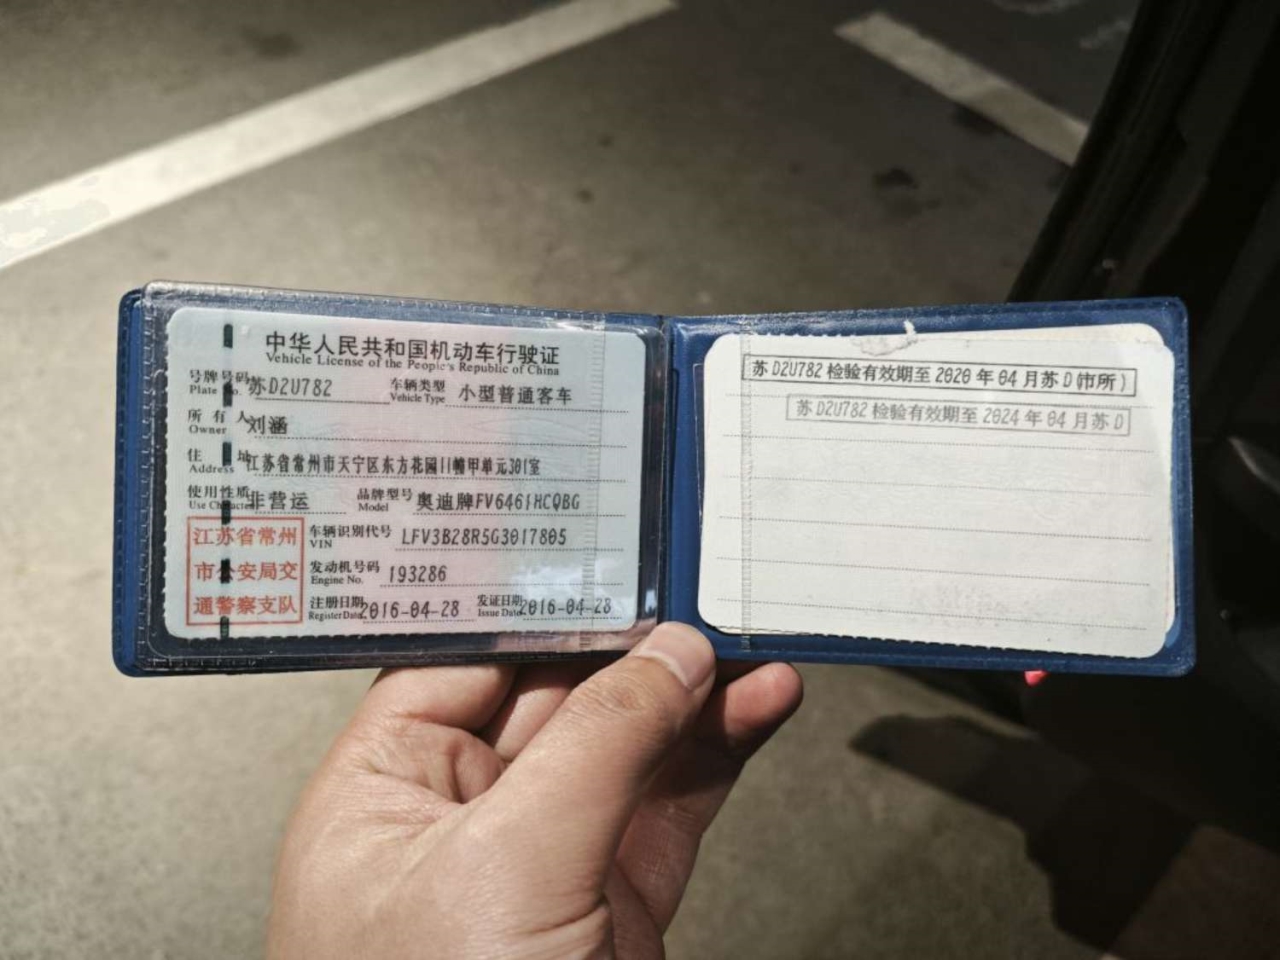 中华人民共和国机动车行驶证
Vehicle License of the People's Republic of China
号牌号码 苏D2U782 车辆类型 小型普通客车
Plate No. Vehicle Type
所有人 刘涵
Owner
住址 江苏省常州市天宁区东方花园11幢甲单元301室
Address
使用性质 非营运 品牌型号 奥迪牌FV6461HCQBG
Use Character Model
江苏省常州
市公安局交
通警察支队
车辆识别代号 LFV3B28R5G3017805
VIN
发动机号码 193286
Engine No.
注册日期 2016-04-28 发证日期 2016-04-28
Register Date Issue Date
苏D2U782检验有效期至2020年04月苏D(市所)
苏D2U782检验有效期至2024年04月苏D